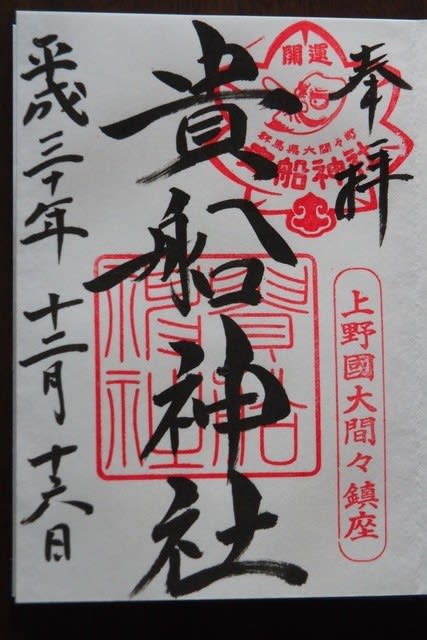 奉拝
開運
群馬県大間々町
貴船神社
上野國大間々鎮座
貴船神社
貴船神社
平成三十年 十二月 十六日